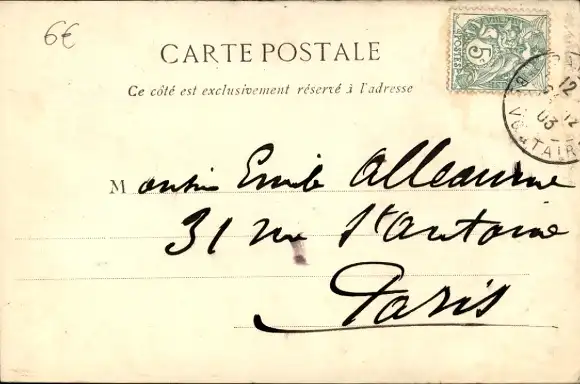 6€
CARTE POSTALE
Ce côté est exclusivement réservé à l'adresse
POSTES
5c
12
03
VOLTAIRE
Monsieur Emile Alleaume
31 rue St Antoine
Paris